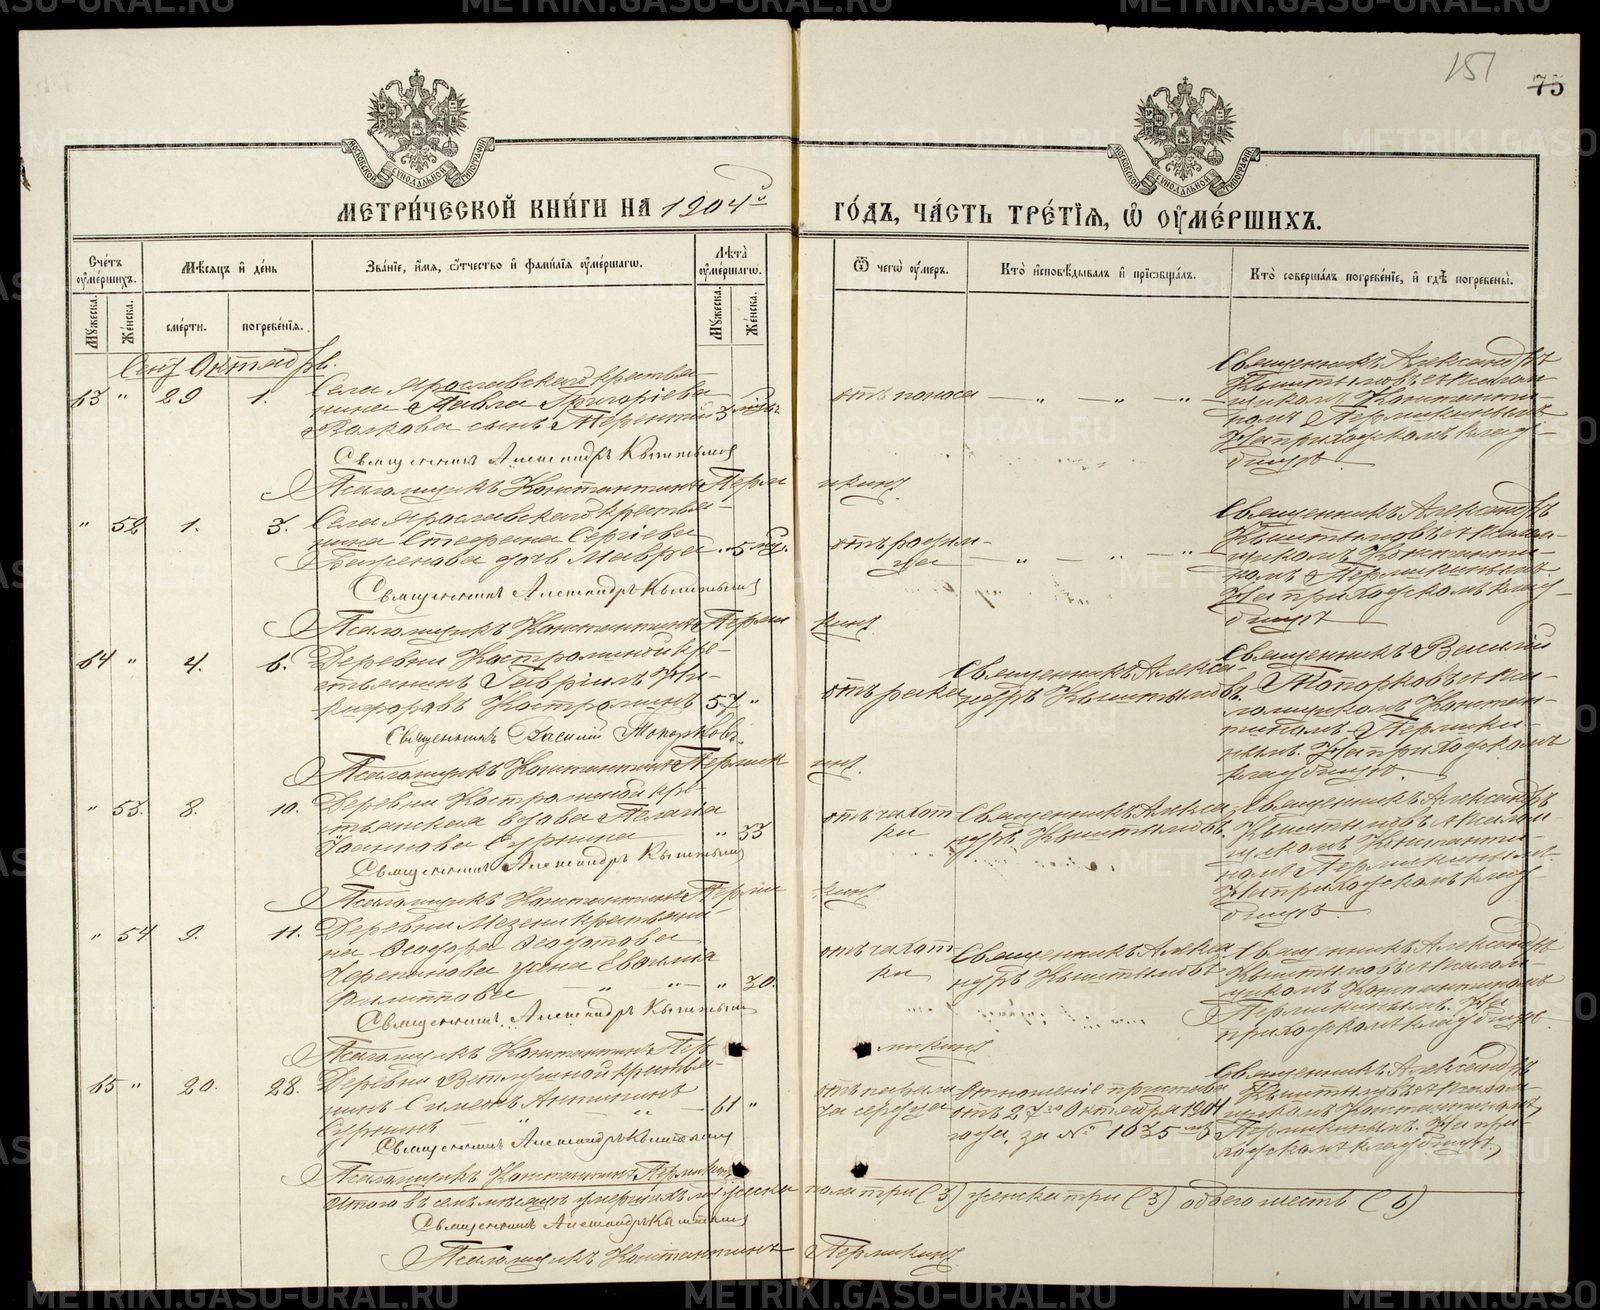 151
75
МОСКОВСКОЙ СѴНОДАЛЬНОЙ ТИПОГРАФІИ
МОСКОВСКОЙ СѴНОДАЛЬНОЙ ТИПОГРАФІИ
МЕТРИ́ЧЕСКОЙ КНИ́ГИ НА 1904й ГО́ДЪ, ЧА́СТЬ ТРЕ́ТІѦ, Ѽ ОУ҆МЕ́РШИХЪ.
Сче́тъ оу҆ме́ршихъ.
Мꙋ́жеска.
Же́нска.
Мѣ́сяцъ и҆ де́нь
сме́рти.
погребе́нїѧ.
Зва́нїе, и҆́мѧ, ѻ҆́тчество и҆ фами́лїѧ оу҆ме́ршагѡ.
Лѣ́та оу҆ме́ршагѡ.
Мꙋ́жеска.
Же́нска.
Ѿ чегѡ̀ оу҆́меръ.
Кто̀ и҆сповѣ́дывалъ и҆ прїѡбща́лъ.
Кто̀ соверша́лъ погребе́нїе, и҆ гдѣ̀ погребены̀.
Октябрь.
63 " 29 1.
Села Ярославскаго крестья-
нина Павла Григоріева
Волкова сынъ Терентій 3 мѣс.
отъ поноса — " — " — "
Священникъ Александръ
Кыштымовъ с псалом-
щикомъ Константи-
номъ Пермикинымъ
На приходскомъ клад-
бищѣ
Священникъ Александръ Кыштымовъ
Псаломщикъ Константинъ Перми кинъ
" 52 1. 3.
Села Ярославскаго крестья-
нина Стефана Сергіева
дочь Мавра " 5 мѣс.
отъ родим-
ца — " — " — "
Священникъ Александръ
Кыштымовъ с псалом-
щикомъ Константи-
номъ Пермикинымъ
На приходскомъ клад-
бищѣ
Священникъ Александръ Кыштымовъ
Псаломщикъ Константинъ Перми кинъ
64 " 4. 6.
Деревни Костроминой кре-
стьянинъ Гавріилъ Ни-
кифоровъ Костроминъ 57 "
отъ рака
Священникъ Алекса-
ндръ Кыштымовъ
Священникъ Василій
Топорковъ с пса-
ломщикомъ Констан-
тиномъ Пермики-
нымъ. На приходскомъ
кладбищѣ.
Священникъ Василій Топорковъ
Псаломщикъ Константинъ Пермик инъ
" 53. 8. 10.
Деревни Костроминой кре-
стьянская вдова Пелагія
Іоаннова Суркина " 33
отъ чахот-
ки
Священникъ Алекса
ндръ Кыштымовъ
Священникъ Александръ
Кыштымовъ с псалом-
щикомъ Константи-
номъ Пермикинымъ.
На приходскомъ клад-
бищѣ.
Священникъ Александръ Кыштымовъ
Псаломщикъ Константинъ Перми кинъ
" 54 9. 11.
Деревни Мезени крестьяни-
на Ѳеодора Ѳеодотова
жена Евѳимія
Филиппова — " — " 30.
отъ чахот-
ки
Священникъ Алекса
ндръ Кыштымовъ
Священникъ Александръ
Кыштымовъ с псалом-
щикомъ Константиномъ
Пермикинымъ. На
приходскомъ кладбищѣ.
Священникъ Александръ Кыштымовъ
Псаломщикъ Константинъ Пер микинъ
65 " 20. 28.
Деревни Ветлугиной крестья-
нинъ Симеонъ Антипинъ
Суркинъ — " — 61 "
отъ парали-
ча сердца
Отношеніе пристава
отъ 27го Октября 1904
года, за № 1635мъ
Священникъ Александръ
Кыштымовъ с псалом-
щикомъ Константиномъ
Пермикинымъ. На при-
ходскомъ кладбищѣ
Священникъ Александръ Кыштымовъ
Псаломщикъ Константинъ Пермикинъ
Итого въ семъ мѣсяцѣ умершихъ мужеска пола три (3) женска три (3) обоего шесть (6)
Священникъ Александръ Кыштымовъ
Псаломщикъ Константинъ Пермикинъ
METRIKI.GASO-URAL.RU